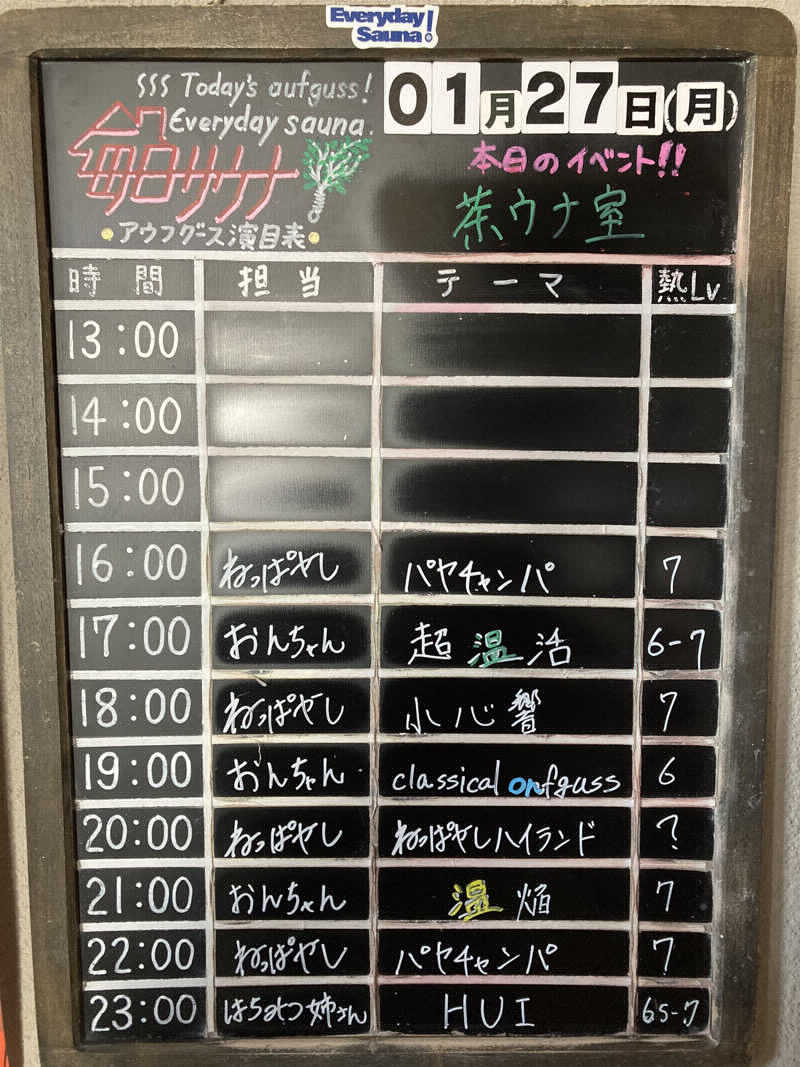 Everyday
Sauna!
SSS Today's aufguss!
Everyday sauna.
毎日サウナ
アウフグス演目表
01月27日(月)
本日のイベント!!
茶ウナ室
時間 担当 テーマ 熱Lv
13:00
14:00
15:00
16:00 ねっぱヤし パヤチャンパ 7
17:00 おんちゃん 超温活 6-7
18:00 ねっぱヤし 小心響 7
19:00 おんちゃん classical onfguss 6
20:00 ねっぱヤし ねっぱヤしハイランド ?
21:00 おんちゃん 温焔 7
22:00 ねっぱヤし パヤチャンパ 7
23:00 はちみつ姉さん HUI 6.5-7